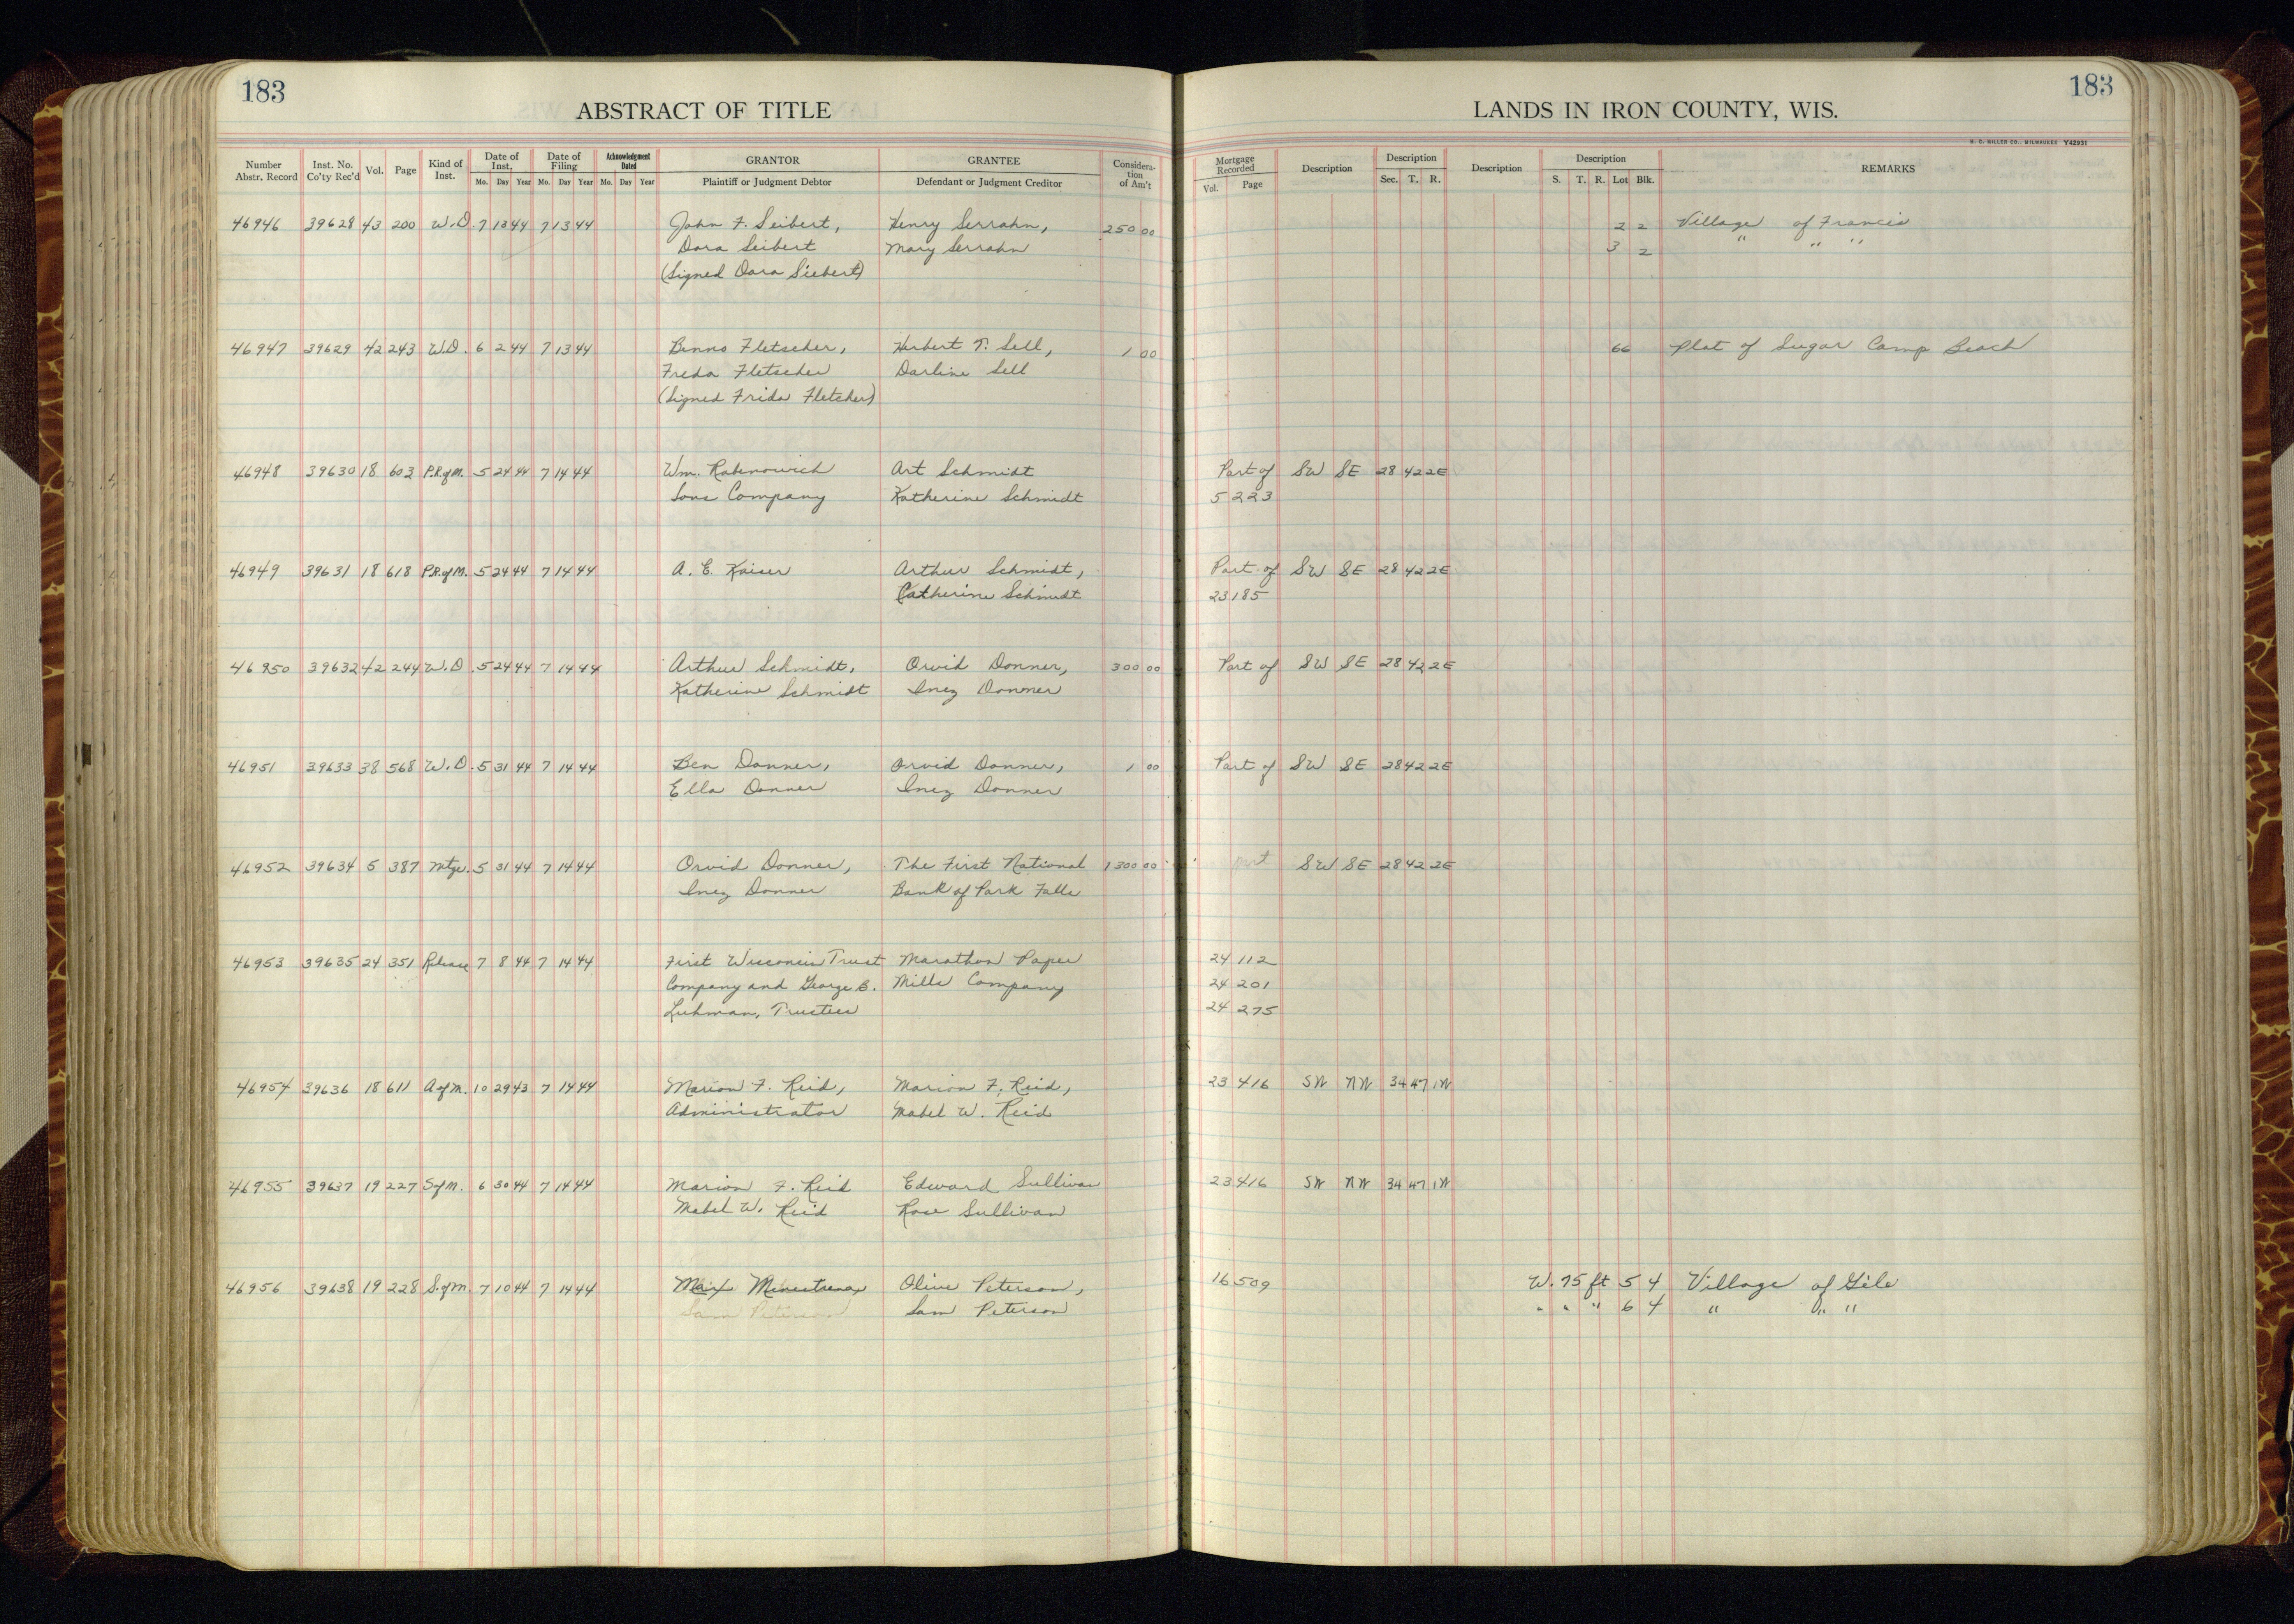 183
183
ABSTRACT OF TITLE
LANDS IN IRON COUNTY, WIS.
H. C. MILLER CO., MILWAUKEE Y42931
Number Abstr. Record Inst. No. Co'ty Rec'd Vol. Page Kind of Inst. Date of Inst. Mo. Day Year Date of Filing Mo. Day Year Acknowledgment Dated Mo. Day Year GRANTOR Plaintiff or Judgment Debtor GRANTEE Defendant or Judgment Creditor Consideration of Am't Mortgage Recorded Vol. Page Description Description Sec. T. R. Description Description S. T. R. Lot Blk. REMARKS
46946 39628 43 200 W.D. 7 13 44 7 13 44 John F. Seibert, Henry Serrahn, 250 00 2 2 Village of Francis
Dora Seibert Mary Serrahn 3 2 " " "
(Signed Dora Siebert)
46947 39629 42 243 W.D. 6 2 44 7 13 44 Benno Fletscher, Herbert T. Sell, 1 00 66 Plat of Sugar Camp Beach
Freda Fletscher Darline Sell
(Signed Frida Fletcher)
46948 39630 18 603 P.R.of M. 5 24 44 7 14 44 Wm. Rabenowich Art Schmidt Part of SW SE 28 42 2E
Sons Company Katherine Schmidt 5 223
46949 39631 18 618 P.R.of M. 5 24 44 7 14 44 A. E. Kaiser Arthur Schmidt, Part of SW SE 28 42 2E
Catherine Schmidt 23 185
46950 39632 42 244 W.D. 5 24 44 7 14 44 Arthur Schmidt, Orvid Donner, 300 00 Part of SW SE 28 42 2E
Katherine Schmidt Inez Donner
46951 39633 38 568 W.D. 5 31 44 7 14 44 Ben Donner, Orvid Donner, 1 00 Part of SW SE 28 42 2E
Ella Donner Inez Donner
46952 39634 5 387 Mtge. 5 31 44 7 14 44 Orvid Donner, The First National 1300 00 SW SE 28 42 2E
Inez Donner Bank of Park Falls
46953 39635 24 351 Release 7 8 44 7 14 44 First Wisconsin Trust Marathon Paper 24 112
Company and George B. Mills Company 24 201
Luhman, Trustees 24 275
46954 39636 18 611 A of M. 10 29 43 7 14 44 Marion F. Reid, Marion F. Reid, 23 416 SW NW 34 47 1W
Administrator Mabel W. Reid
46955 39637 19 227 S of M. 6 30 44 7 14 44 Marion F. Reid Edward Sullivan 23 416 SW NW 34 47 1W
Mabel W. Reid Rose Sullivan
46956 39638 19 228 S. of M. 7 10 44 7 14 44 Max Olive Peterson, 16 509 W. 75 ft 5 4 Village of Gile
Sam Peterson Sam Peterson " " " 6 4 " " "